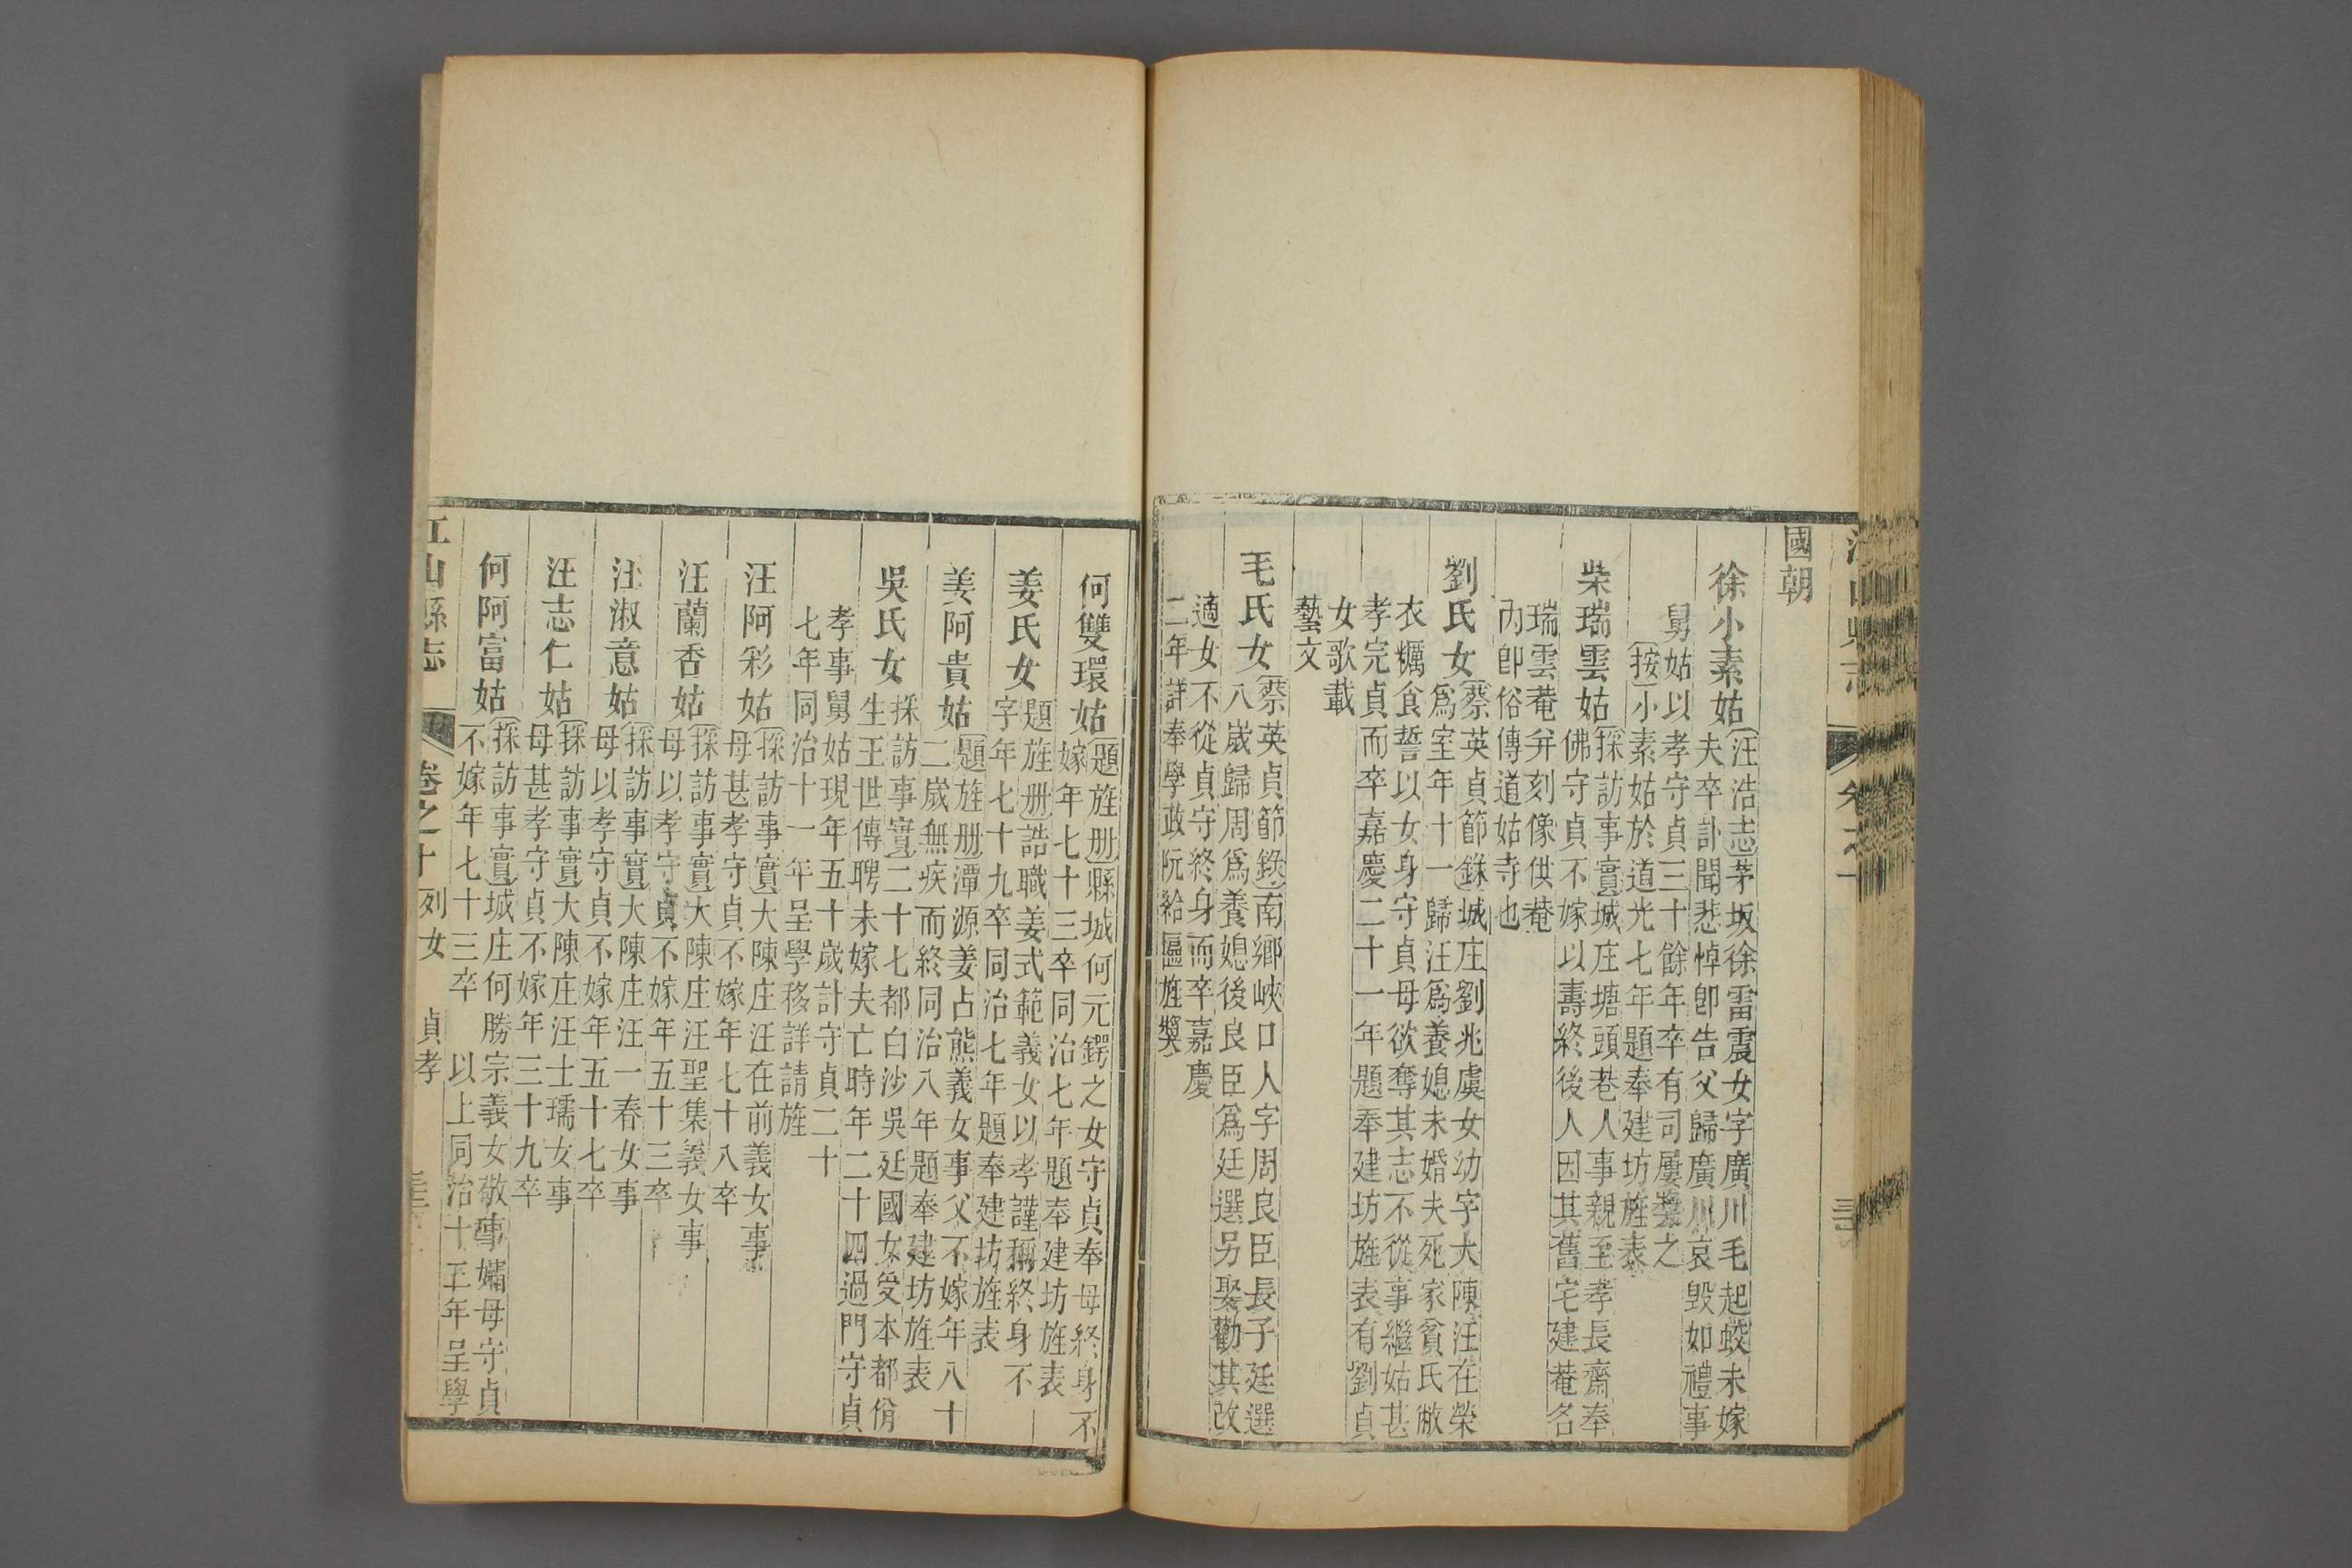 國朝
徐小素姑(汪浩志)茅坂徐雷震女字廣川毛起蛟未嫁
夫卒訃聞悲悼卽告父歸廣川哀毀如禮事
舅姑以孝守貞三十餘年卒有司屢獎之
(按)小素姑於道光七年題奉建坊旌表
柴瑞雲姑(採訪事實)城庄塘頭巷人事親至孝長齋奉
佛守貞不嫁以壽終後人因其舊宅建菴名
瑞雲菴幷刻像供菴
內卽俗傳道姑寺也
劉氏女(蔡英貞節錄)城庄劉兆虞女幼字大陳汪在榮
爲室年十一歸汪爲養媳未婚夫死家貧氏敝
衣糲食誓以女身守貞母欲奪其志不從事繼姑甚
孝完貞而卒嘉慶二十一年題奉建坊旌表有劉貞
女歌載
藝文
毛氏女(蔡英貞節錄)南鄉峽口人字周良臣長子廷選
八歲歸周爲養媳後良臣爲廷選另娶勸其改
適女不從貞守終身而卒嘉慶
二年詳奉學政阮給匾旌獎
何雙環姑(題旌册)縣城何元鍔之女守貞奉母終身不
嫁年七十三卒同治七年題奉建坊旌表
姜氏女題旌册)誥職姜式範義女以孝謹稱終身不
字年七十九卒同治七年題奉建坊旌表
姜阿貴姑(題旌册)潭源姜占熊義女事父不嫁年八十
二歲無疾而終同治八年題奉建坊旌表
吳氏女採訪事實)二十七都白沙吳廷國女受本都佾
生王世傳聘未嫁夫亡時年二十四過門守貞
孝事舅姑現年五十歲計守貞二十
七年同治十一年呈學移詳請旌
汪阿彩姑(採訪事實)大陳庄汪在前義女事
母甚孝守貞不嫁年七十八卒
汪蘭香姑(採訪事實)大陳庄汪聖集義女事
母以孝守貞不嫁年五十三卒
汪淑意姑(採訪事實)大陳庄汪一春女事
母以孝守貞不嫁年五十七卒
汪志仁姑(採訪事實)大陳庄汪士瓀女事
母甚孝守貞不嫁年三十九卒
何阿富姑(採訪事實)城庄何勝宗義女敬事孀母守貞
不嫁年七十三卒 以上同治十一年呈學
江山縣志 卷之十 列女 貞孝